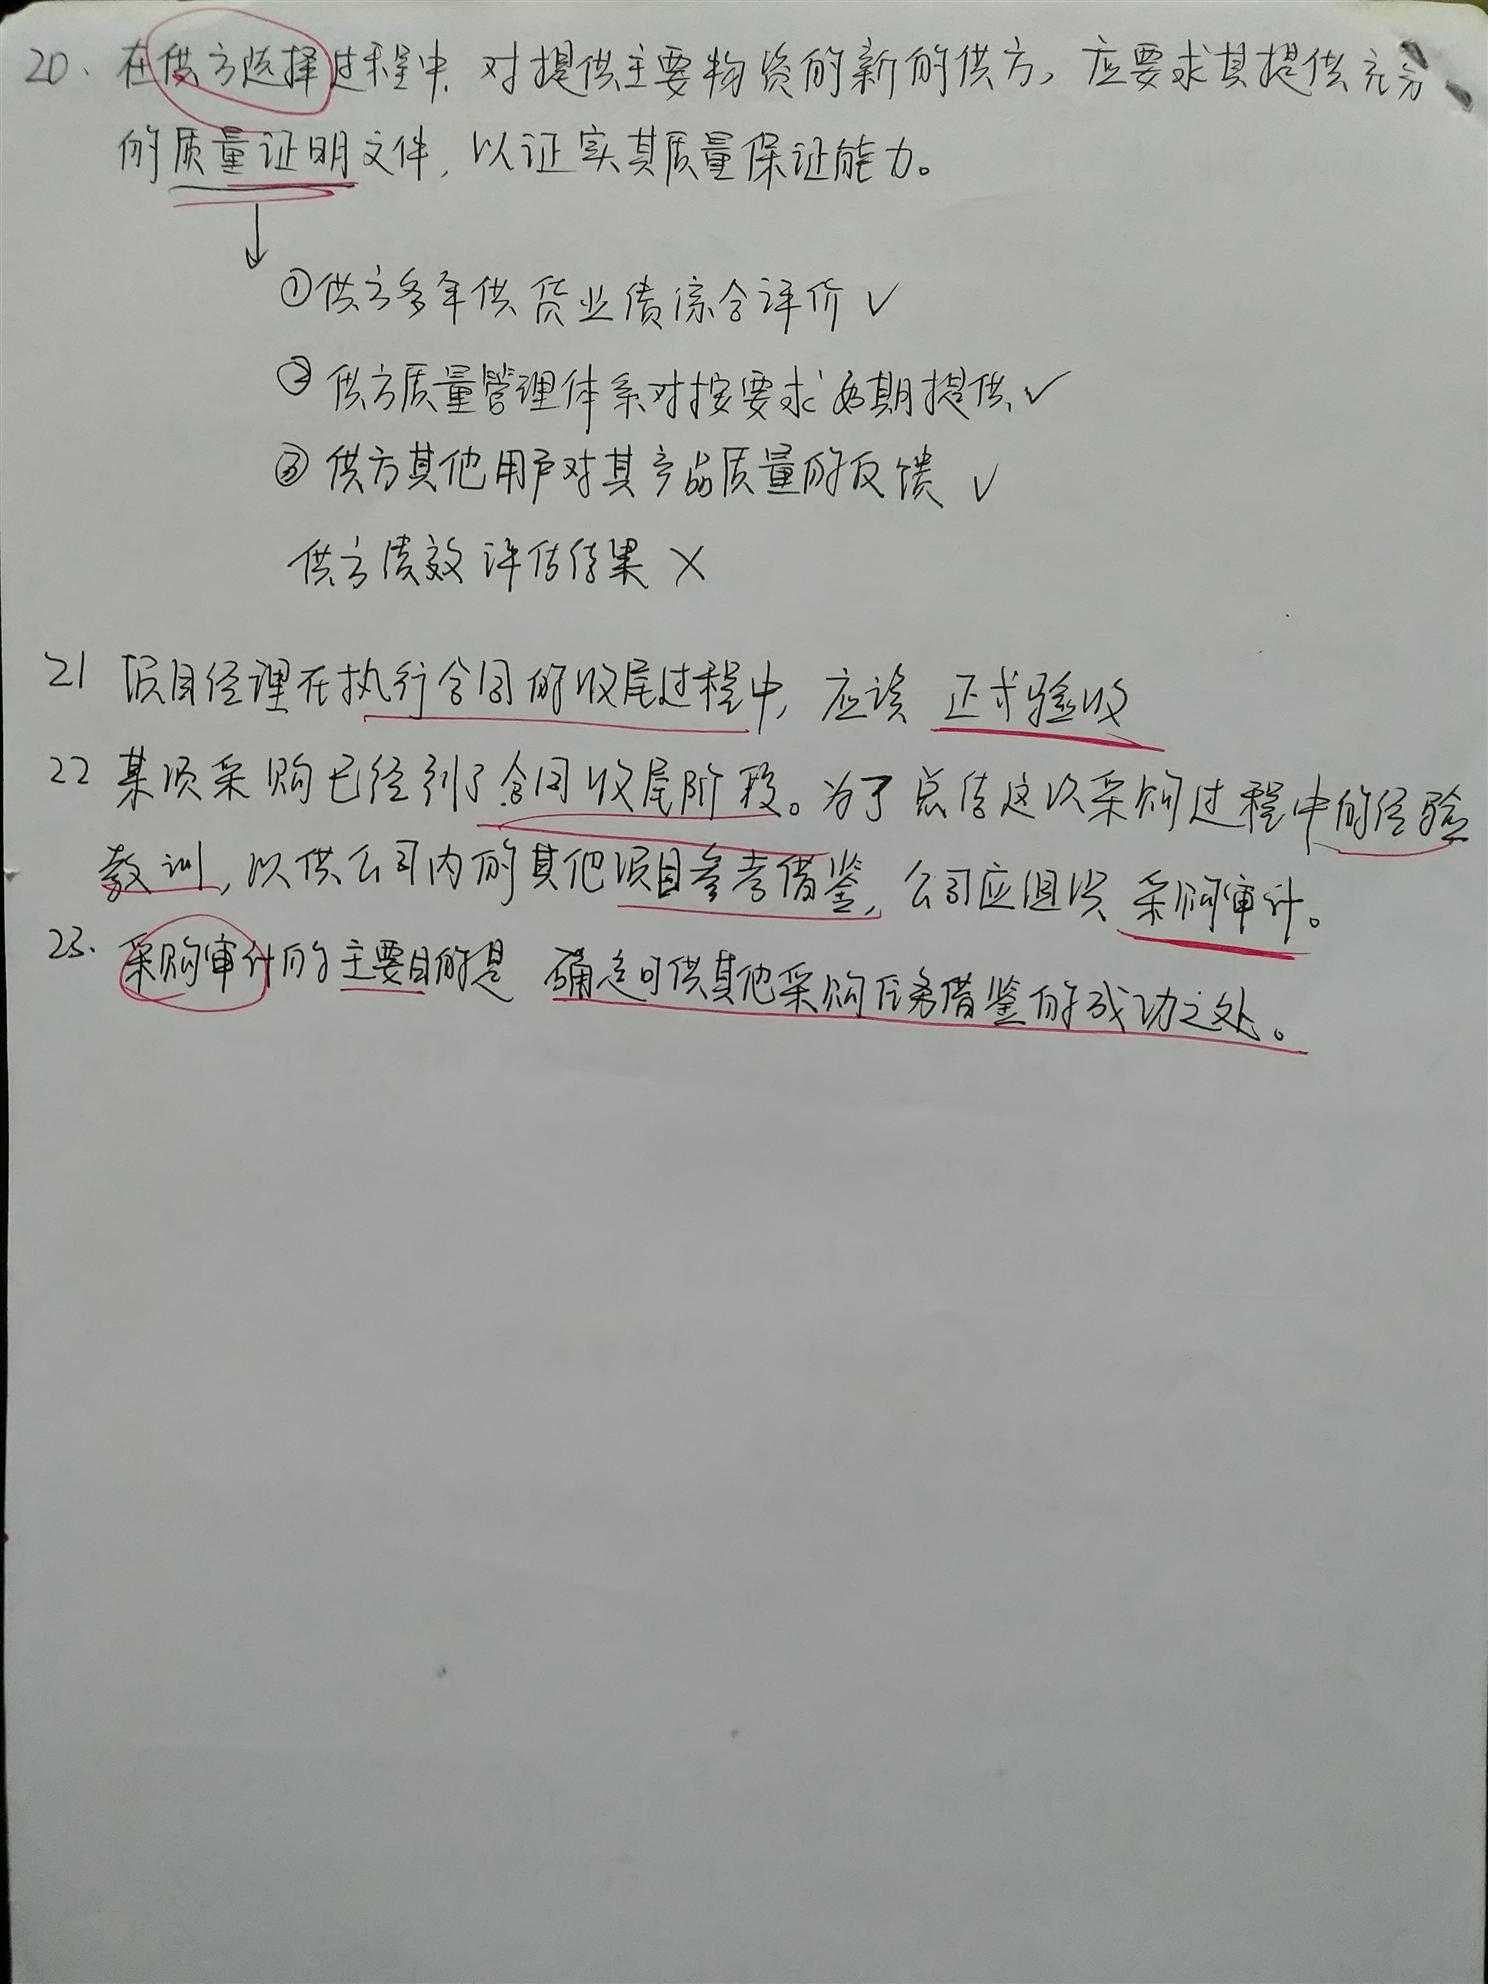 20、在供方选择过程中,对提供主要物资的新的供方,应要求其提供充分
的质量证明文件,以证实其质量保证能力。
①供方多年供货业绩综合评价√
②供方质量管理体系对按要求如期提供√
③供方其他用户对其产品质量的反馈√
供方绩效评估结果×
21 项目经理在执行合同的收尾过程中,应该 正式验收
22 某项采购已经到了合同收尾阶段。为了总结这次采购过程中的经验
教训,以供公司内的其他项目参考借鉴,公司应组织 采购审计。
23.采购审计的主要目的是 确定可供其他采购任务借鉴的成功之处。